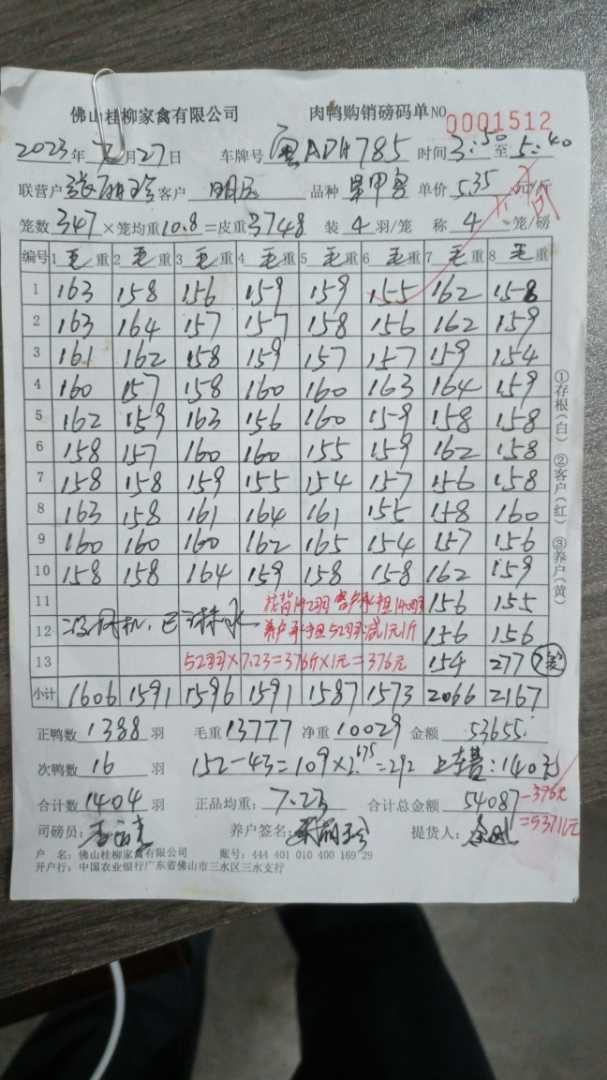 佛山桂柳家禽有限公司 肉鸭购销磅码单 NO 0001512
2023年 月27日 车牌号 粤ADH785 时间3:50至5:40
联营户 张丽珍 客户 明记 品种 单价5.35元/斤
笼数347×笼均重10.8=皮重3748 装4羽/笼 称4笼/磅
编号 1毛重 2毛重 3毛重 4毛重 5毛重 6毛重 7毛重 8毛重
1 163 158 156 159 159 155 162 158
2 163 164 157 157 158 156 162 159
3 161 162 158 159 157 157 159 154
4 160 157 158 160 160 163 164 159
5 162 159 163 156 160 159 158 158
6 158 157 160 160 155 159 162 158
7 158 158 159 155 154 157 156 158
8 163 158 161 164 161 155 158 160
9 160 160 160 162 165 154 157 156
10 158 158 164 159 158 158 162 159
11 156 155
12 没风机,已淋水 养户承担52羽减1元/斤 156 156
13 52羽×7.23=376斤×1元=376元 154 277
小计 1606 1591 1596 1591 1587 1573 2066 2167
正鸭数1388羽 毛重13777 净重10029 金额53655
次鸭数16羽 152-43=109×2.675=292 上车费:140元
合计数1404羽 正品均重:7.23 合计总金额54087-376元
=53711元
司磅员: 养户签名:张丽珍 提货人:
户 名:佛山桂柳家禽有限公司 账号:444 401 010 400 169 29
开户行:中国农业银行广东省佛山市三水区三水支行
①存根(白) ②客户(红) ③养户(黄)